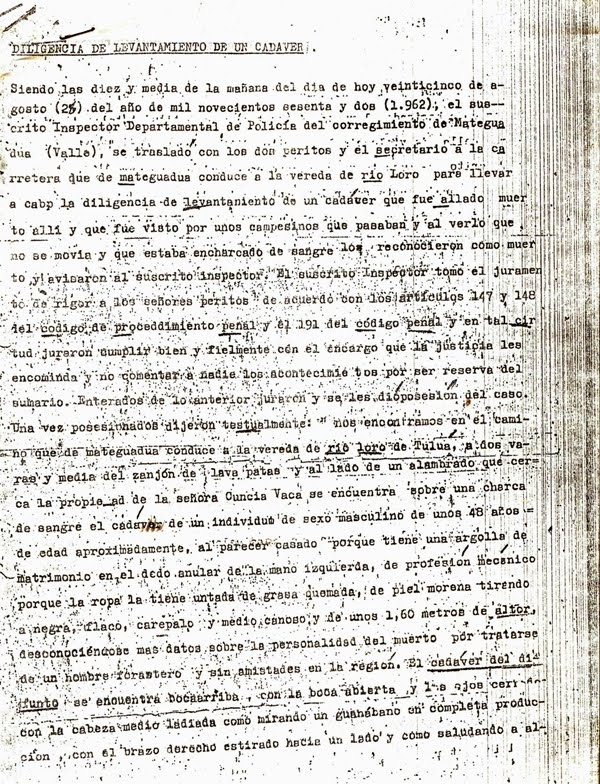 DILIGENCIA DE LEVANTAMIENTO DE UN CADAVER.
Siendo las diez y media de la mañana del dia de hoy veinticinco de a-
gosto (25) del año de mil novecientos sesenta y dos (1.962), el sus--
crito Inspector Departamental de Policía del corregimiento de Mategua
dua (Valle), se traslado con los dos peritos y el secretario a la ca
rretera que de mateguadua conduce a la vereda de rio Loro para llevar
a cabp la diligencia de levantamiento de un cadáver que fue allado muer
to alli y que fue visto por unos campesinos que pasaban y al verlo que
no se movia y que estaba encharcado de sangre los reconocieron como muer
to y avisaron al suscrito inspector. El suscrito Inspector tomó el juramen
to de rigor a los señores peritos de acuerdo con los artículos 147 y 148
del codigo de proceddimiento penal y el 191 del código penal y en tal cir
tud juraron cumplir bien y fielmente con el encargo que la justicia les
encominda y no comentar a nadie los acontecimie tos por ser reserva del
sumario. Enterados de lo anterior juraron y se les dioposesión del caso.
Una vez posesionados dijeron testualmente: " nos encontramos en el cami-
no que de mateguadua conduce a la vereda de rio loro de Tulua, a dos va-
ras y media del zanjón de lava patas y al lado de un alambrado que cer-
ca la propie ad de la señora Cuncia Vaca se encuentra sobre una charca
de sangre el cadáver de un individuo de sexo masculino de unos 48 años =
de edad aproximadamente, al parecer casado porque tiene una argolla de
matrimonio en el dedo anular de la mano izquierda, de profesión mecánico
porque la ropa la tiene untada de grasa quemada, de piel morena tirando
a negra, flaco, carepalo y medio canoso y de unos 1,60 metros de altor,
desconociéndose mas datos sobre la personalidad del muerto por tratarse
de un hombre forastero y sin amistades en la región. El cadaver del di-
funto se encuentra bocaarriba con la boca abierta y los ojos cerra-
con la cabeza medio ladiada como mirando un guanábano en completa produc-
cion, con el brazo derecho estirado hacia un lado y como saludando a al-